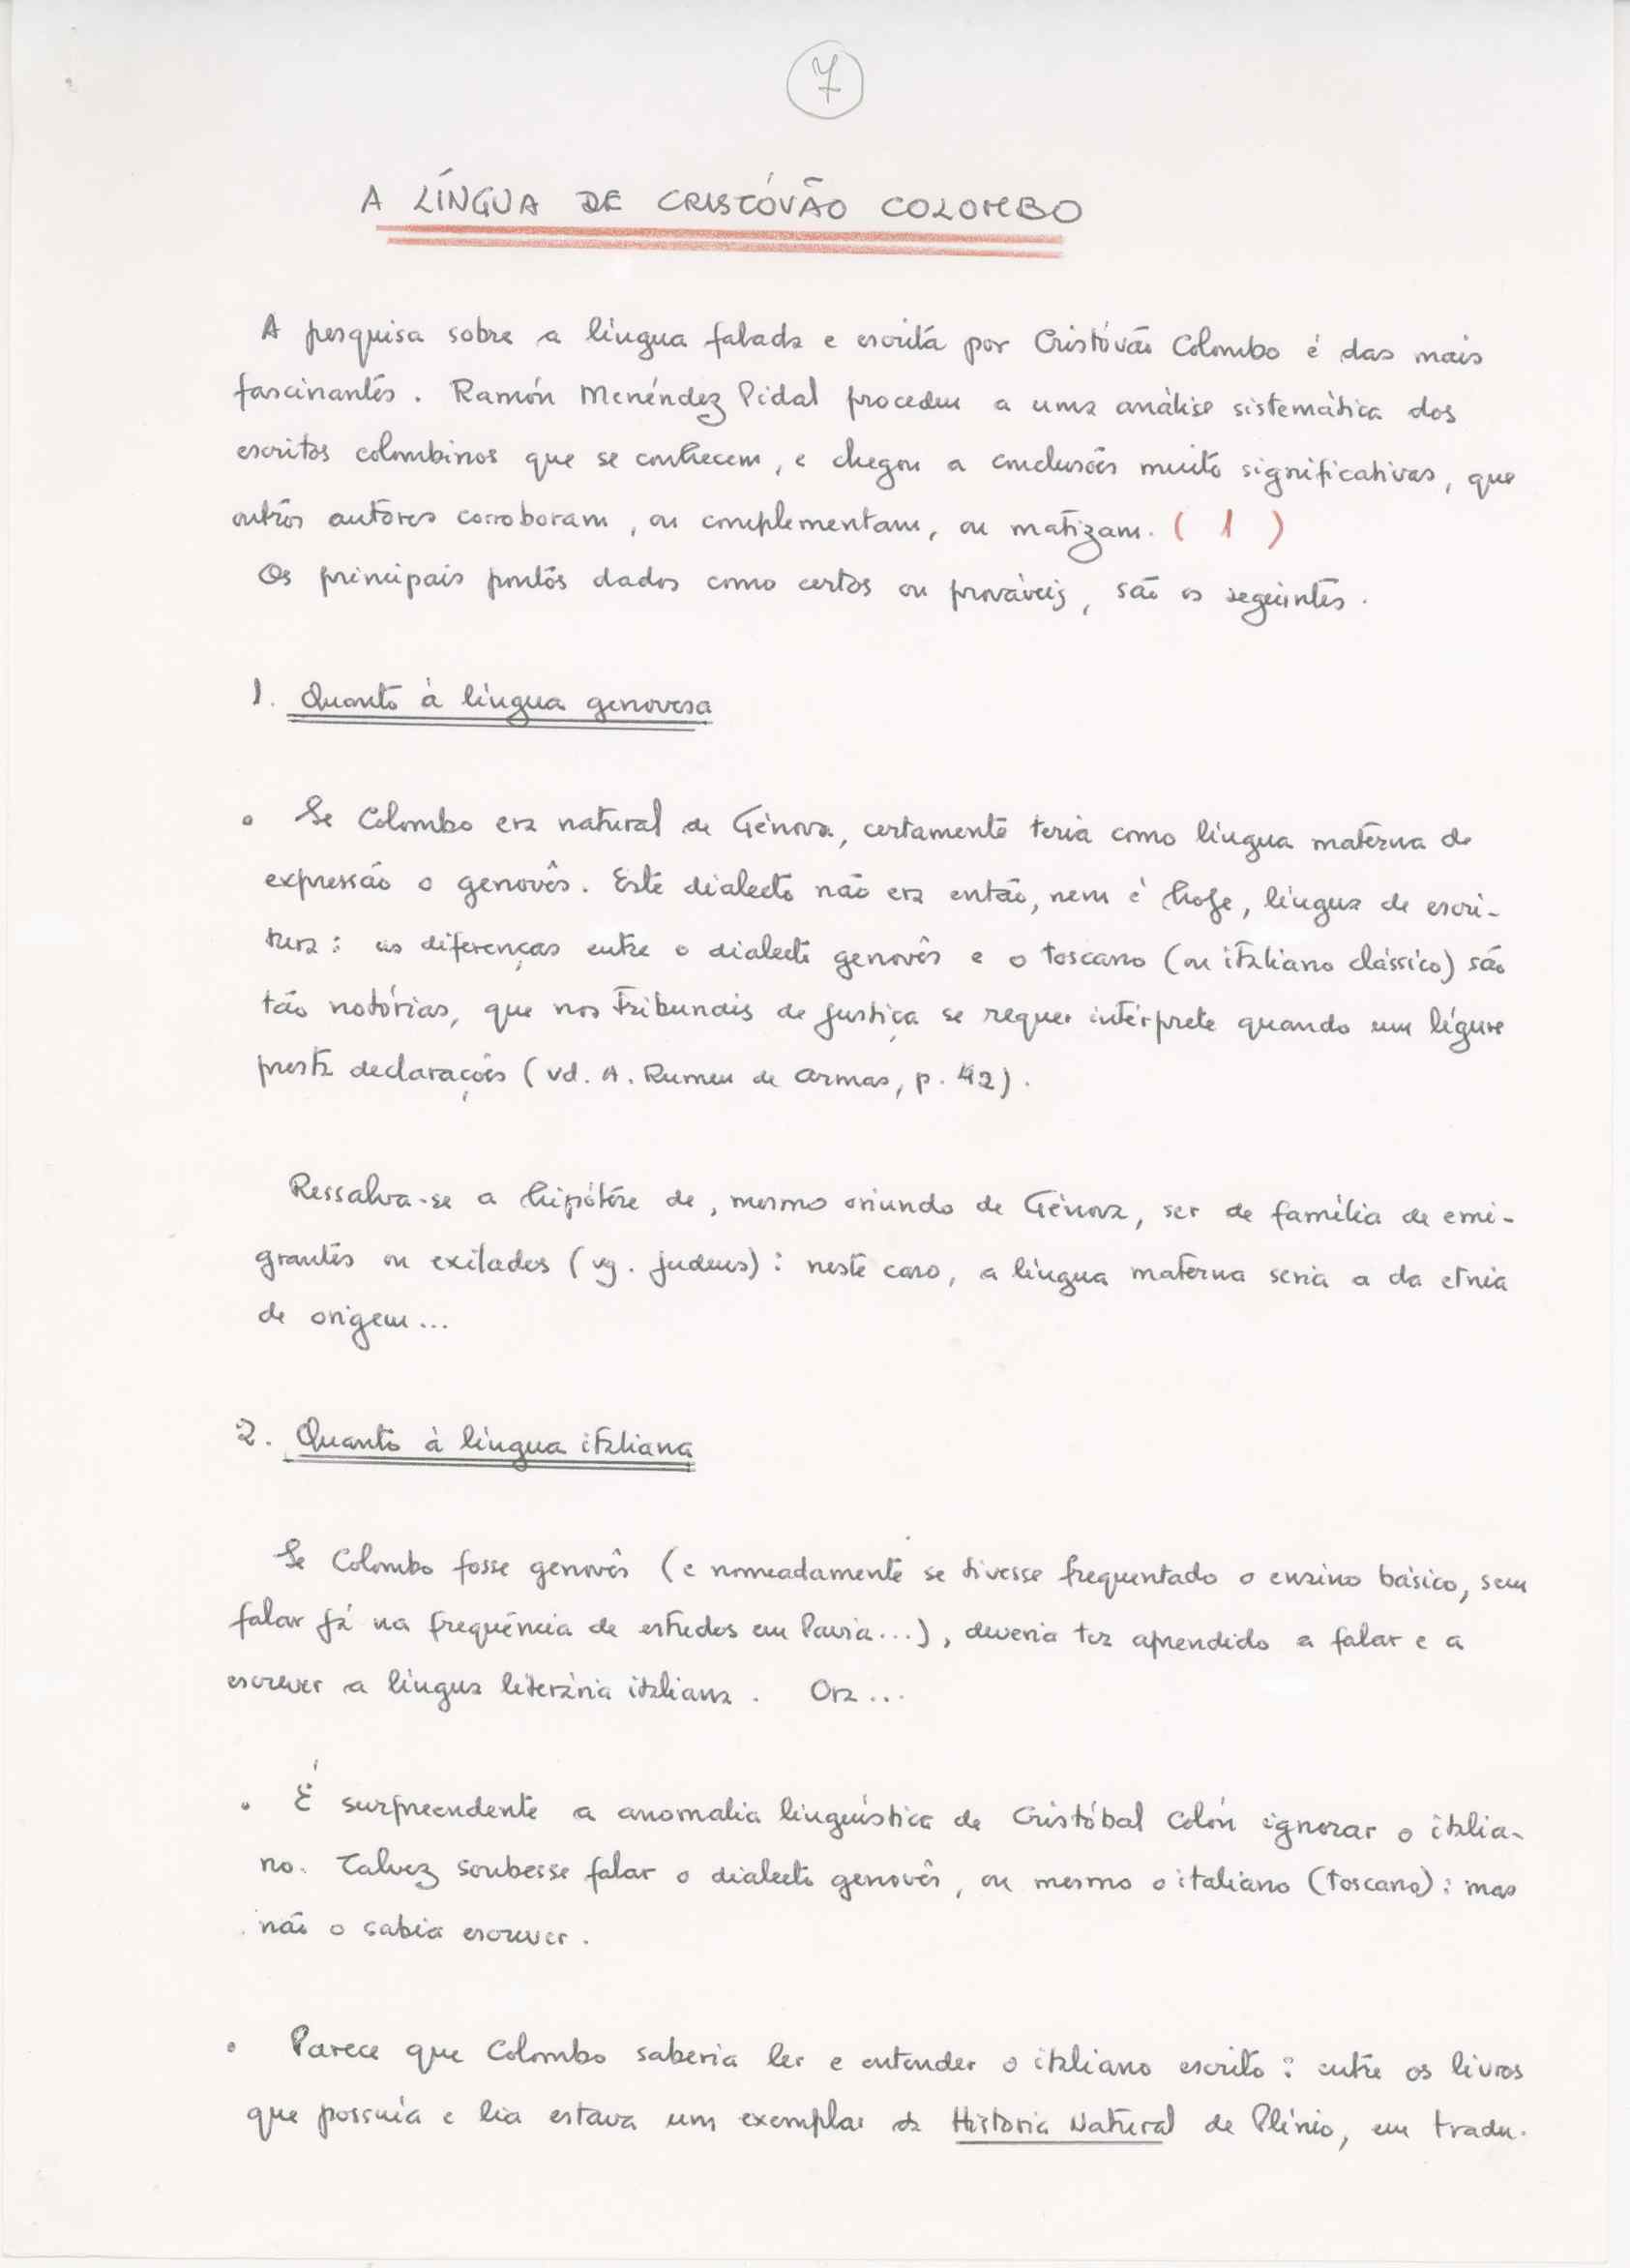 7
A LÍNGUA DE CRISTÓVÃO COLOMBO
A pesquisa sobre a língua falada e escrita por Cristóvão Colombo é das mais
fascinantes. Ramón Menéndez Pidal procedeu a uma análise sistemática dos
escritos colombinos que se conhecem, e chegou a conclusões muito significativas, que
outros autores corroboram, ou complementam, ou matizam. ( 1 )
Os principais pontos dados como certos ou prováveis, são os seguintes.
1. Quanto à língua genovesa
• Se Colombo era natural de Génova, certamente teria como língua materna de
expressão o genovês. Este dialecto não era então, nem é hoje, língua de escri-
tura: as diferenças entre o dialecto genovês e o toscano (ou italiano clássico) são
tão notórias, que nos Tribunais de Justiça se requer intérprete quando um lígure
presta declarações (vd. A. Rumeu de Armas, p. 42).
Ressalva-se a hipótese de, mesmo oriundo de Génova, ser de família de emi-
grantes ou exilados (vg. judeus): neste caso, a língua materna seria a da etnia
de origem...
2. Quanto à língua italiana
Se Colombo fosse genovês (e nomeadamente se tivesse frequentado o ensino básico, sem
falar já na frequência de estudos em Pavia...), deveria ter aprendido a falar e a
escrever a língua literária italiana. Ora...
• É surpreendente a anomalia linguística de Cristóbal Colón ignorar o italia-
no. Talvez soubesse falar o dialecto genovês, ou mesmo o italiano (toscano): mas
não o sabia escrever.
• Parece que Colombo saberia ler e entender o italiano escrito: entre os livros
que possuía e lia estava um exemplar da Historia Natural de Plínio, em tradu-